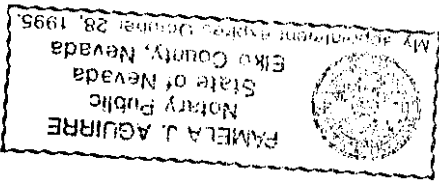 PAMELA J. AGUIRRE
Notary Public
State of Nevada
Elko County, Nevada
My appointment expires October 28, 1995.